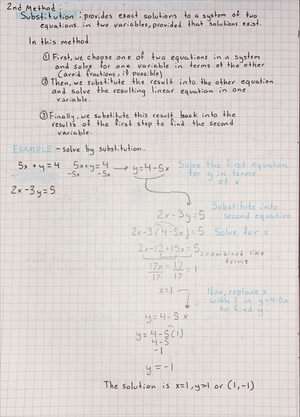 2nd Method:
Substitution: provides exact solutions to a system of two
equations in two variables, provided that solutions exist.
In this method
① First, we choose one of two equations in a system
and solve for one variable in terms of the other
(avoid fractions, if possible)
② Then, we substitute the result into the other equation
and solve the resulting linear equation in one
variable.
③ Finally, we substitute this result back into the
results of the first step to find the second
variable.
EXAMPLE - solve by substitution.
5x + y = 4 5x + y = 4 → y = 4 - 5x Solve the first equation
-5x -5x for y in terms
of x
2x - 3y = 5
Substitute into
2x - 3y = 5 second equation
2x - 3(4 - 5x) = 5 Solve for x
2x - 12 + 15x = 5 combined like
terms
17x = 17 = 1
17 17
x = 1 Now, replace x
with 1 in y = 4 - 5x
y = 4 - 5x to find y.
y = 4 - 5(1)
4 - 5
-1
y = -1
The solution is x = 1, y = 1 or (1, -1)